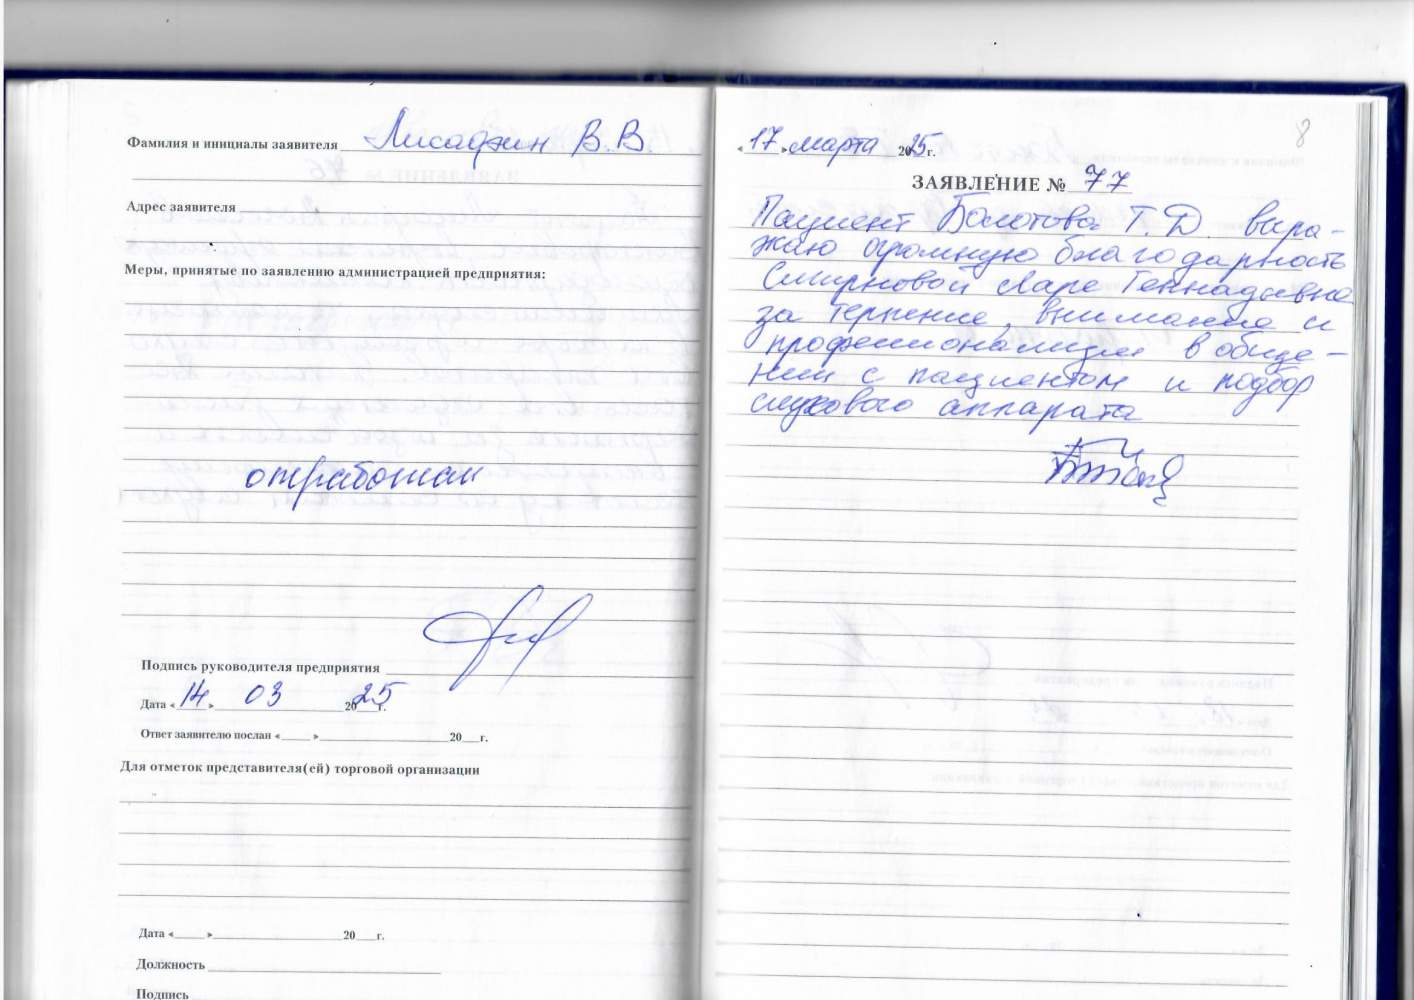 Фамилия и инициалы заявителя Лисафин В.В.
Адрес заявителя
Меры, принятые по заявлению администрацией предприятия:
отработан
Подпись руководителя предприятия
Дата «14» 03 2025 г.
Ответ заявителю послан «   » 20   г.
Для отметок представителя(ей) торговой организации
Дата «   » 20   г.
Должность
Подпись
8
«17» марта 2025 г.
ЗАЯВЛЕНИЕ № 77
Пациент Болотова Т.Д. выра-
жаю огромную благодарность
Смирновой Ларе Геннадьевне
за терпение, внимание и
профессионализм в обще-
нии с пациентом и подбор
слухового аппарата